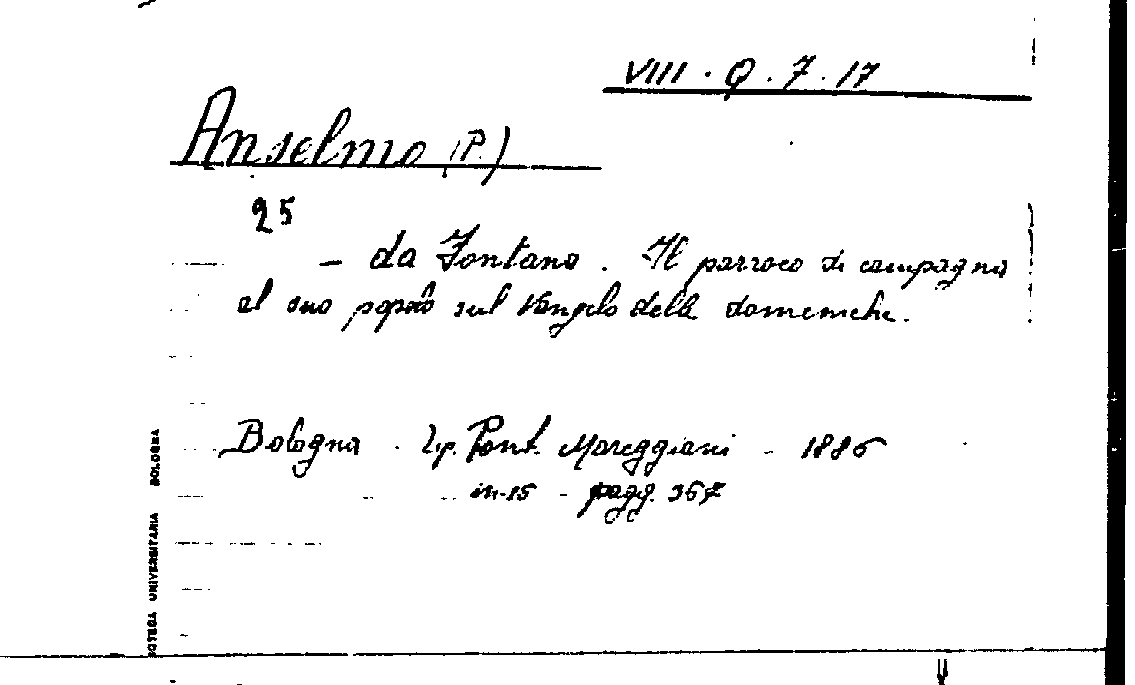 VIII. Q. 7. 17
Anselmo (P.)
25
- da Fontana. Il parroco di campagna
al suo popolo sul Vangelo delle domeniche.
Bologna - Tip. Pont. Mareggiani - 1886
in-15 - pagg. 367
BOLOGNA
UNIVERSITARIA